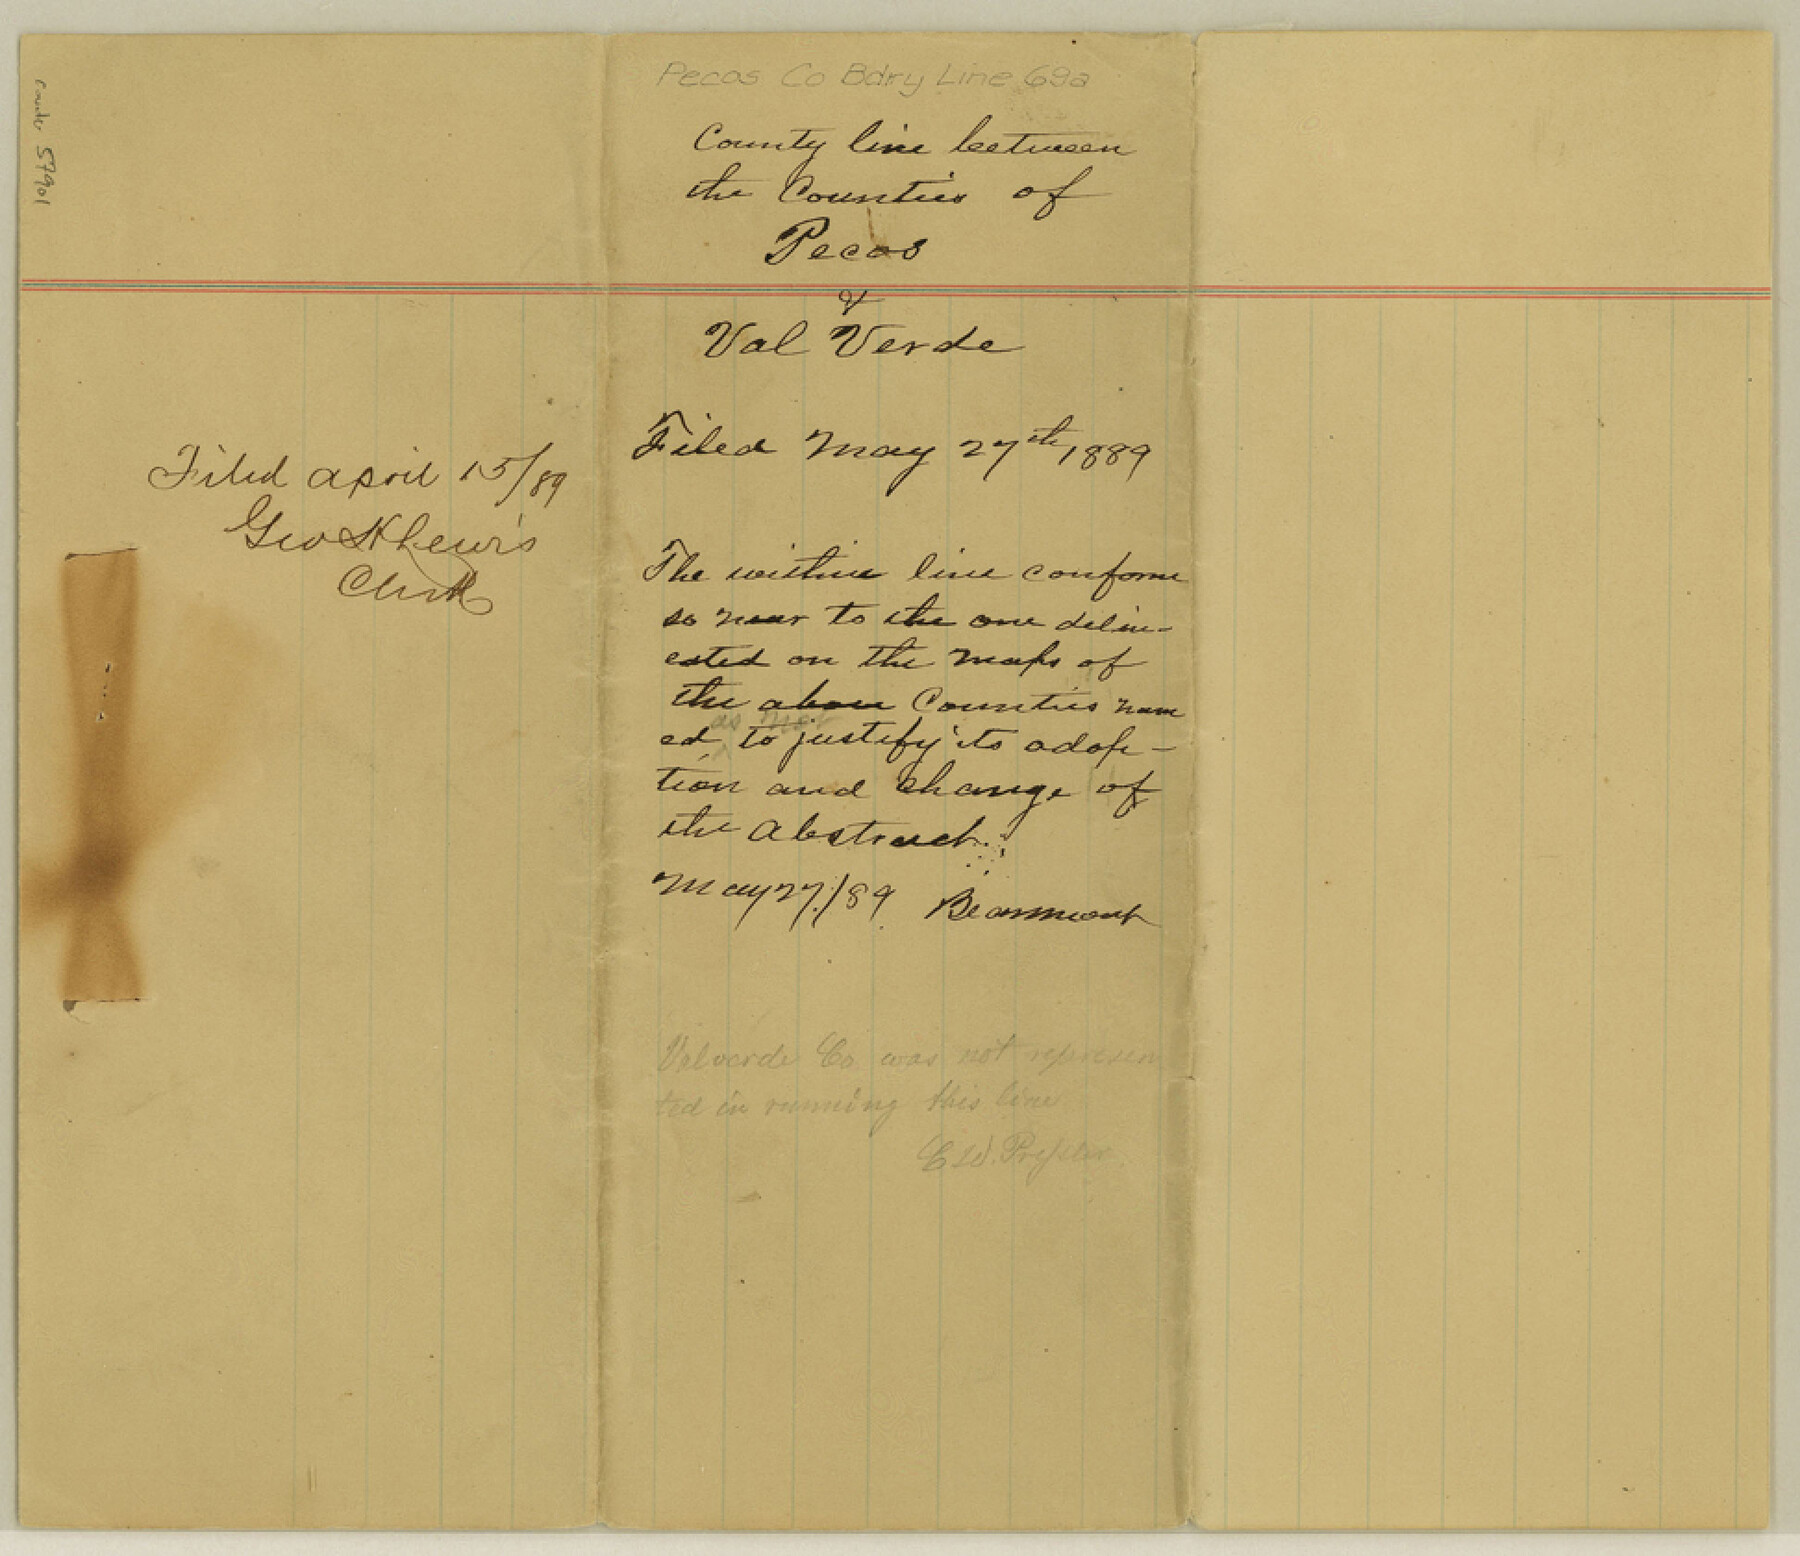 counter 57901
Filed april 15/89
Geo H Lewis
Clerk
Pecos Co Bdry Line 69a
County line between
the Counties of
Pecos
&
Val Verde
Filed May 27th, 1889
The within line conforms
so near to the one delin-
eated on the maps of
the above Counties nam
as not
ed to justify its adop-
tion and change of
the Abstract.
May 27./89 Beaumont
Valverde Co was not represen
ted in running this line
C W. Pressler.